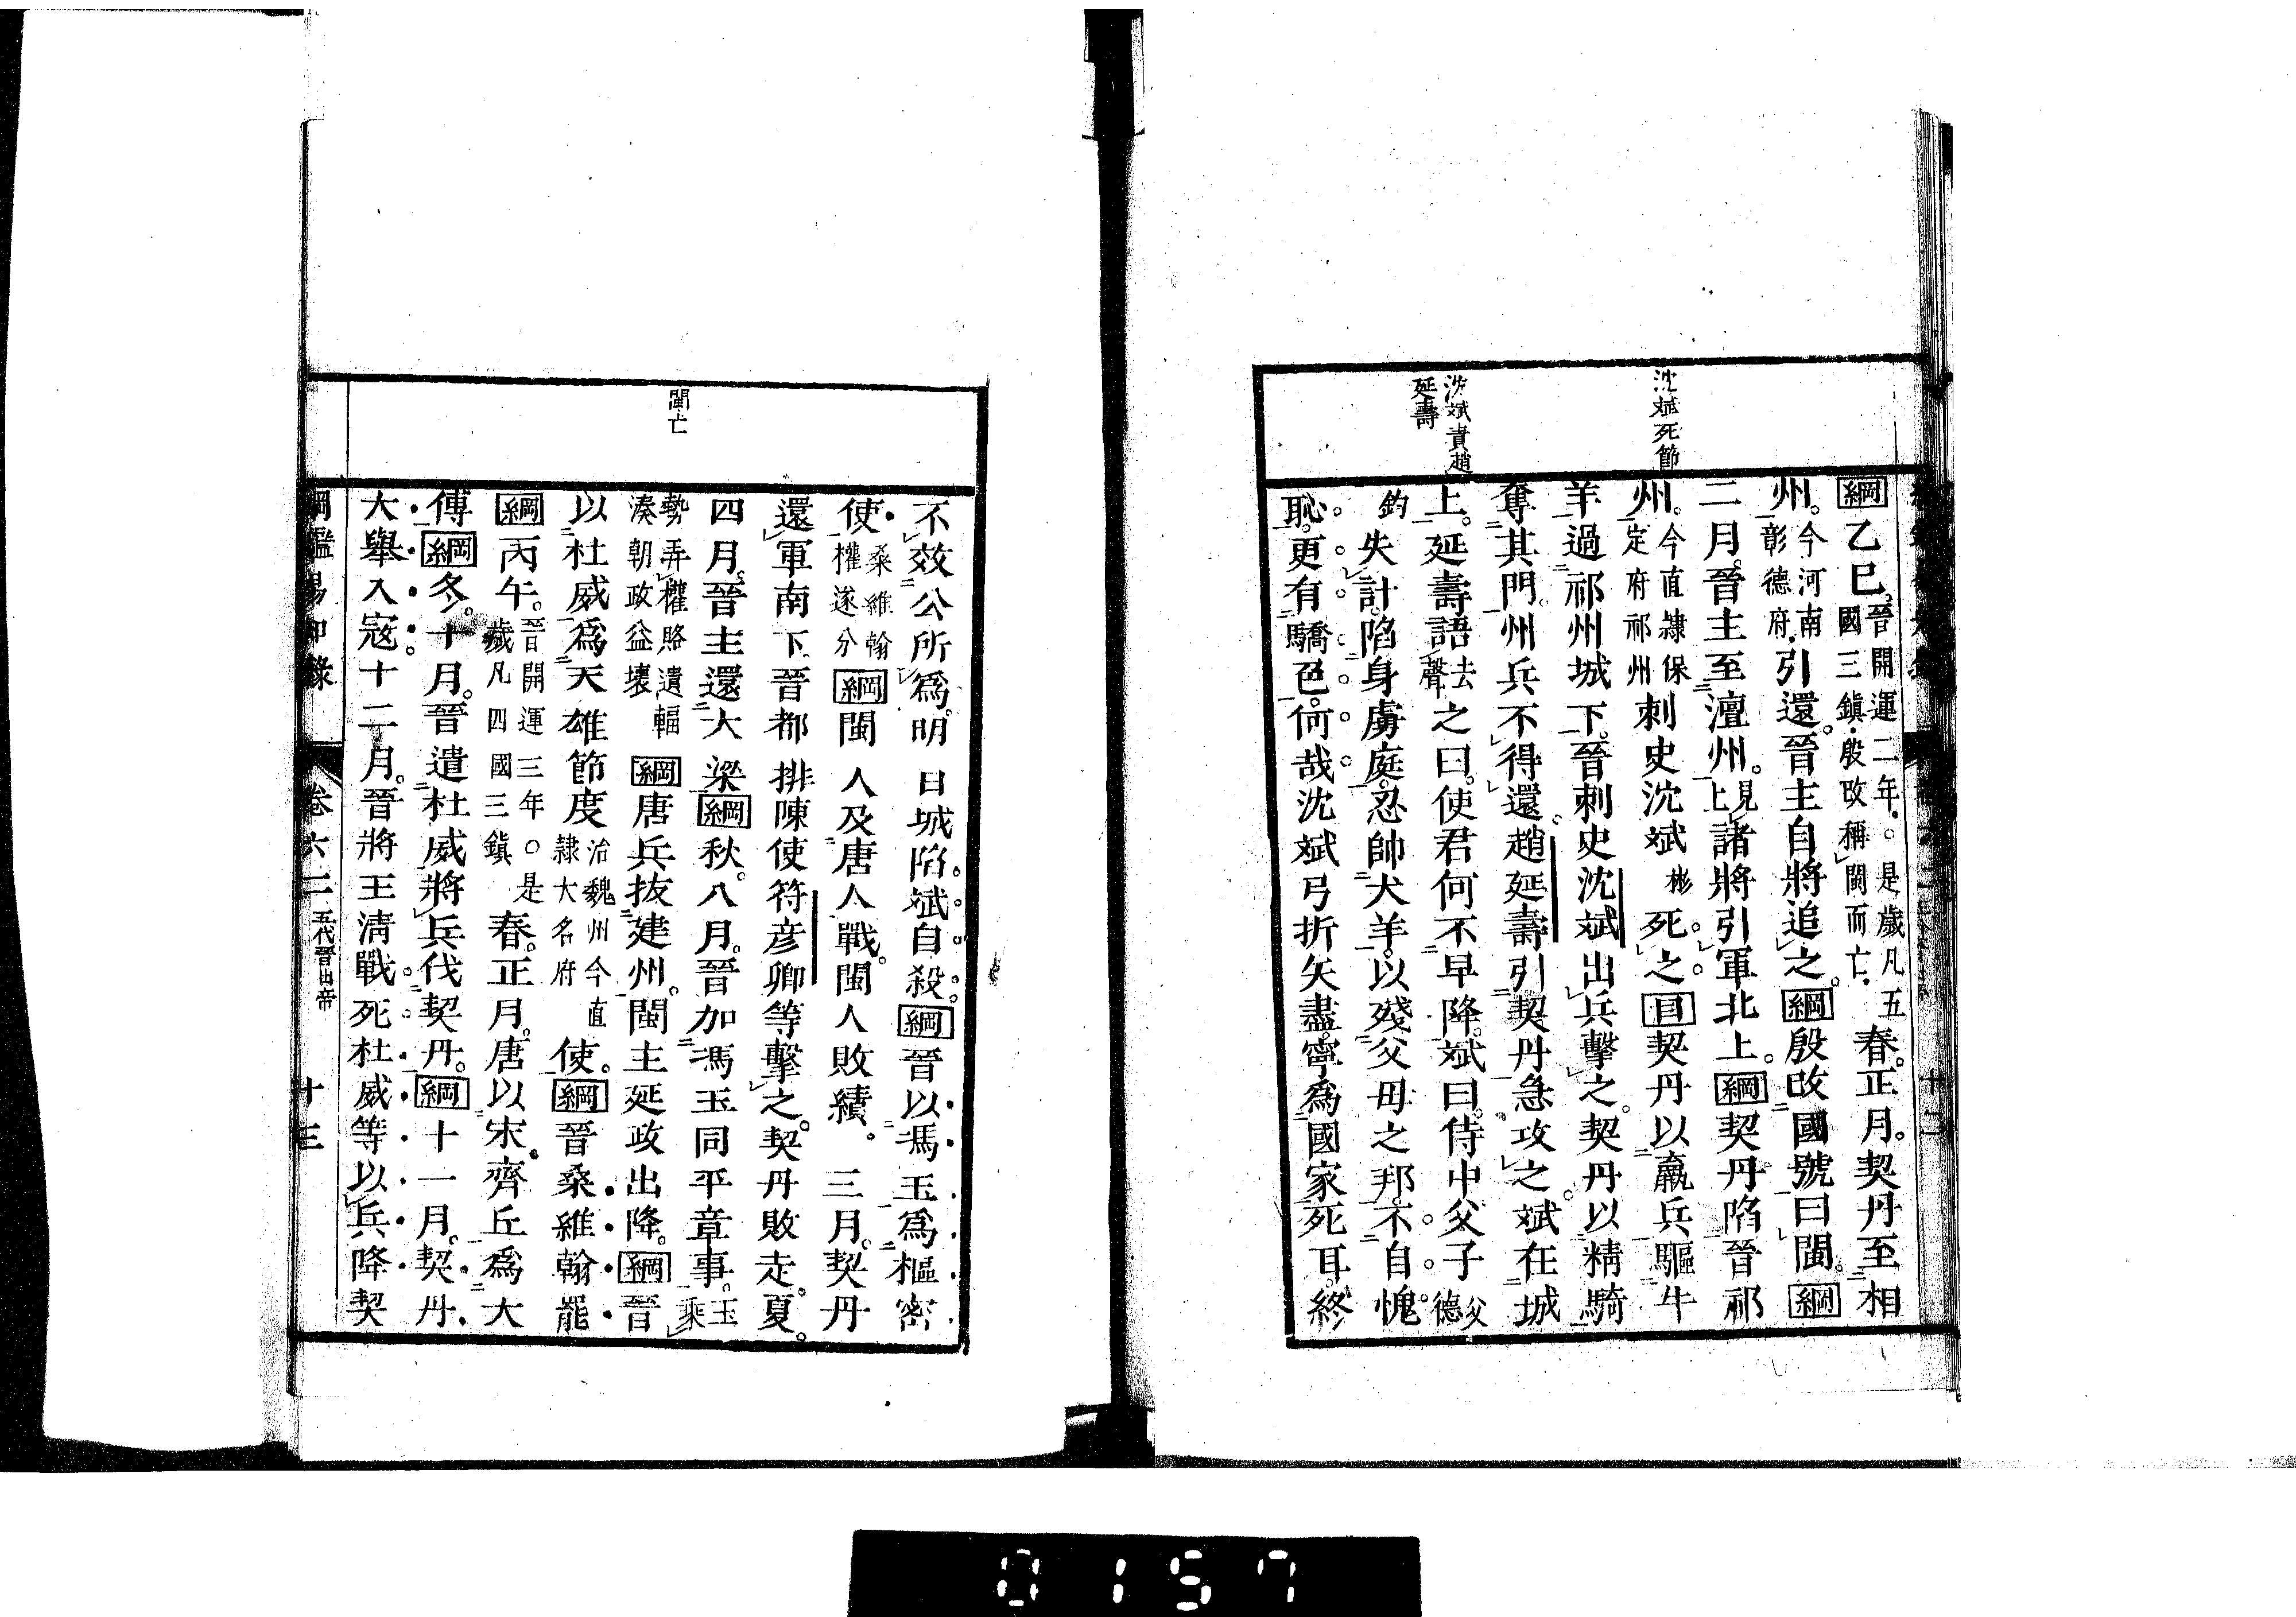 沈斌死節
沈斌責趙
延壽
綱乙巳晉開運二年。○是歲凡五國三鎮殷改稱閩而亡春。正月。契丹至相
州。今河南彰德府引還。晉主自將追之。綱殷改國號曰閩。綱
二月。晉主至澶州。見上諸將引軍北上。綱契丹陷晉祁
州。今直隸保定府祁州刺史沈斌彬死之。目契丹以羸兵驅牛
羊過祁州城下。晉刺史沈斌出兵擊之。契丹以精騎
奪其門。州兵不得還。趙延壽引契丹急攻之。斌在城
上。延壽語去聲之曰。使君何不早降。斌曰。侍中父子父德
鈞失計。陷身虜庭。忍帥犬羊。以殘父母之邦。不自愧
恥。更有驕色。何哉。沈斌弓折矢盡。寧爲國家死耳。終
閩亡
不效公所爲。明日城陷。斌自殺。綱晉以馮玉爲樞密
使。桑維翰權遂分綱閩人及唐人戰。閩人敗績。三月。契丹
還軍南下。晉都排陳使符彦卿等擊之。契丹敗走。夏。
四月。晉主還大梁。綱秋。八月。晉加馮玉同平章事。玉乘
勢弄權賂遺輻湊朝政益壞綱唐兵拔建州。閩主延政出降。綱晉
以杜威爲天雄節度治魏州今直隸大名府使。綱晉桑維翰罷
綱丙午。晉開運三年。○是歲凡四國三鎮春。正月。唐以宋齊丘爲大
傅綱冬。十月。晉遣杜威將兵伐契丹。綱十一月。契丹
大舉入寇。十二月。晉將王淸戰死杜威等以兵降契
綱鑑易知錄 卷六二 五代晉出帝 十三
0157